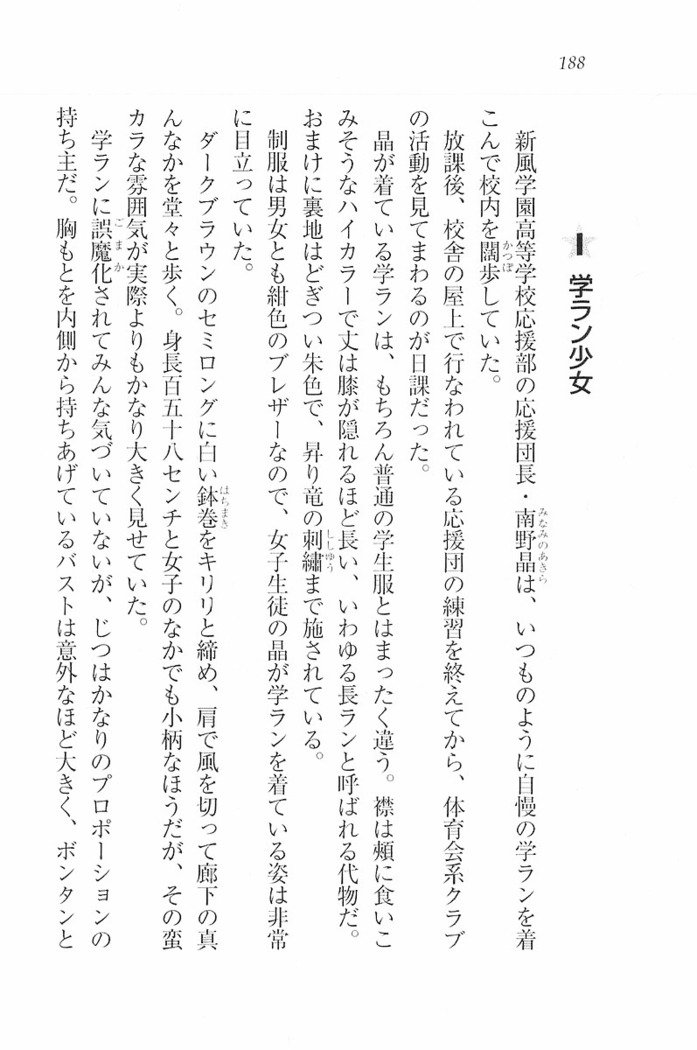 188
I 学ラン少女
新風学園高等学校応援部の応援団長・南野晶は、いつものように自慢の学ランを着
こんで校内を闊歩していた。
放課後、校舎の屋上で行なわれている応援団の練習を終えてから、体育会系クラブ
の活動を見てまわるのが日課だった。
晶が着ている学ランは、もちろん普通の学生服とはまったく違う。襟は頰に食いこ
みそうなハイカラーで丈は膝が隠れるほど長い、いわゆる長ランと呼ばれる代物だ。
おまけに裏地はどぎつい朱色で、昇り竜の刺繡まで施されている。
制服は男女とも紺色のブレザーなので、女子生徒の晶が学ランを着ている姿は非常
に目立っていた。
ダークブラウンのセミロングに白い鉢巻をキリリと締め、肩で風を切って廊下の真
んなかを堂々と歩く。身長百五十八センチと女子のなかでも小柄なほうだが、その蛮
カラな雰囲気が実際よりもかなり大きく見せていた。
学ランに誤魔化されてみんな気づいていないが、じつはかなりのプロポーションの
持ち主だ。胸もとを内側から持ちあげているバストは意外なほど大きく、ボンタンと